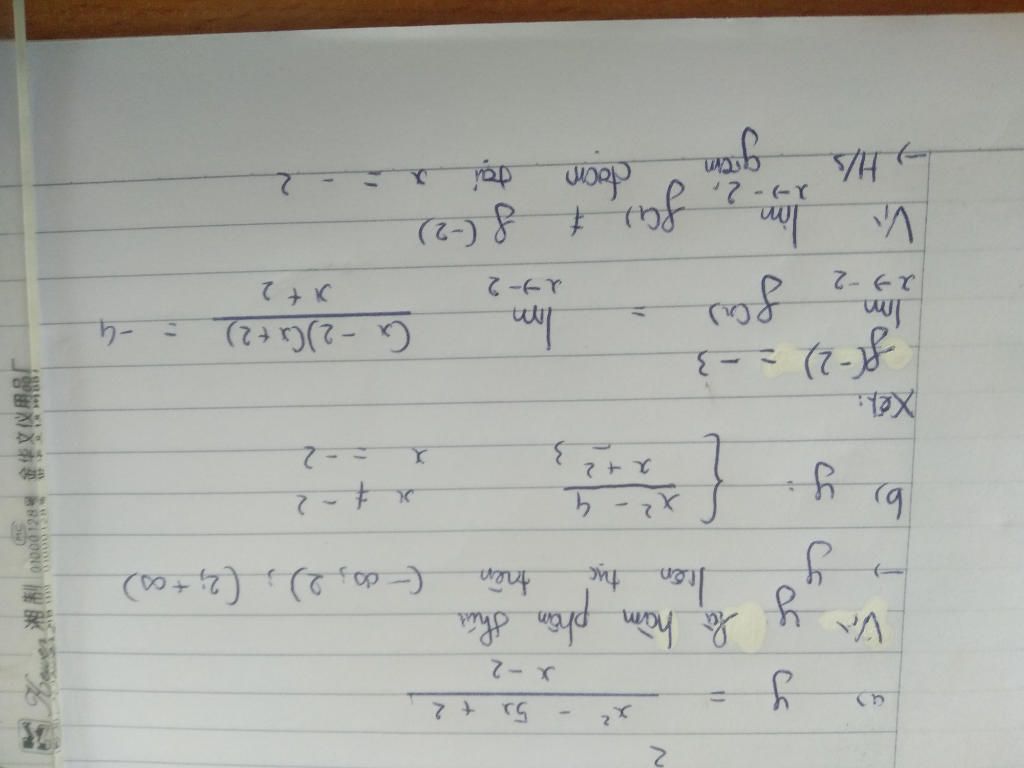 2
a) y = x² - 5x + 2 / x - 2
Vì y là hàm phân thức
→ y liên tục trên (-∞; 2); (2; +∞)
b) y = { x² - 4 / x + 2 x ≠ -2
-3 x = -2
Xét:
f(-2) = -3
lim x→-2 f(x) = lim x→-2 (x-2)(x+2) / x + 2 = -4
Vì lim x→-2 f(x) ≠ f(-2)
→ H/s gián đoạn tại x = -2
Kewer 湘制 01000128号 金华文仪用品厂
MC